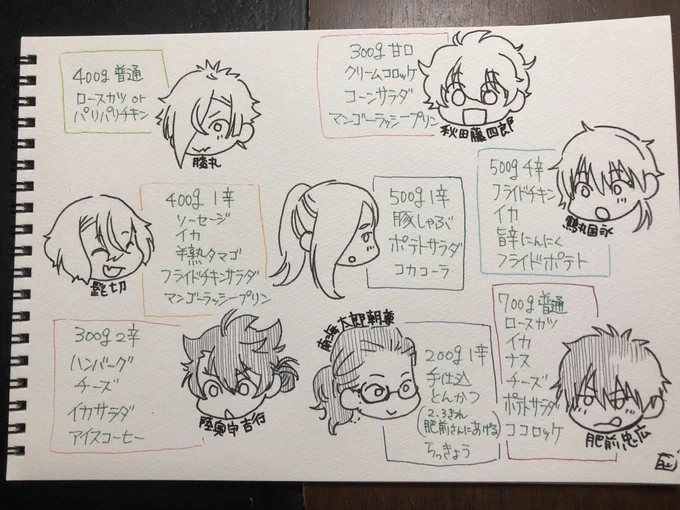 400g 普通
ロースカツ or
パリパリチキン
膝丸
300g 甘口
クリームコロッケ
コーンサラダ
マンゴーラッシープリン
秋田藤四郎
400g 1辛
ソーセージ
イカ
半熟タマゴ
フライドチキンサラダ
マンゴーラッシープリン
髭切
500g 1辛
豚しゃぶ
ポテトサラダ
コカコーラ
500g 4辛
フライドチキン
イカ
旨辛にんにく
フライドポテト
鶴丸国永
300g 2辛
ハンバーグ
チーズ
イカサラダ
アイスコーヒー
陸奥守吉行
南海太郎朝尊
200g 1辛
手仕込
とんかつ
(2、3きれ
肥前さんにあげる)
らっきょう
700g 普通
ロースカツ
イカ
ナス
チーズ
ポテトサラダ
ココロッケ
肥前忠広